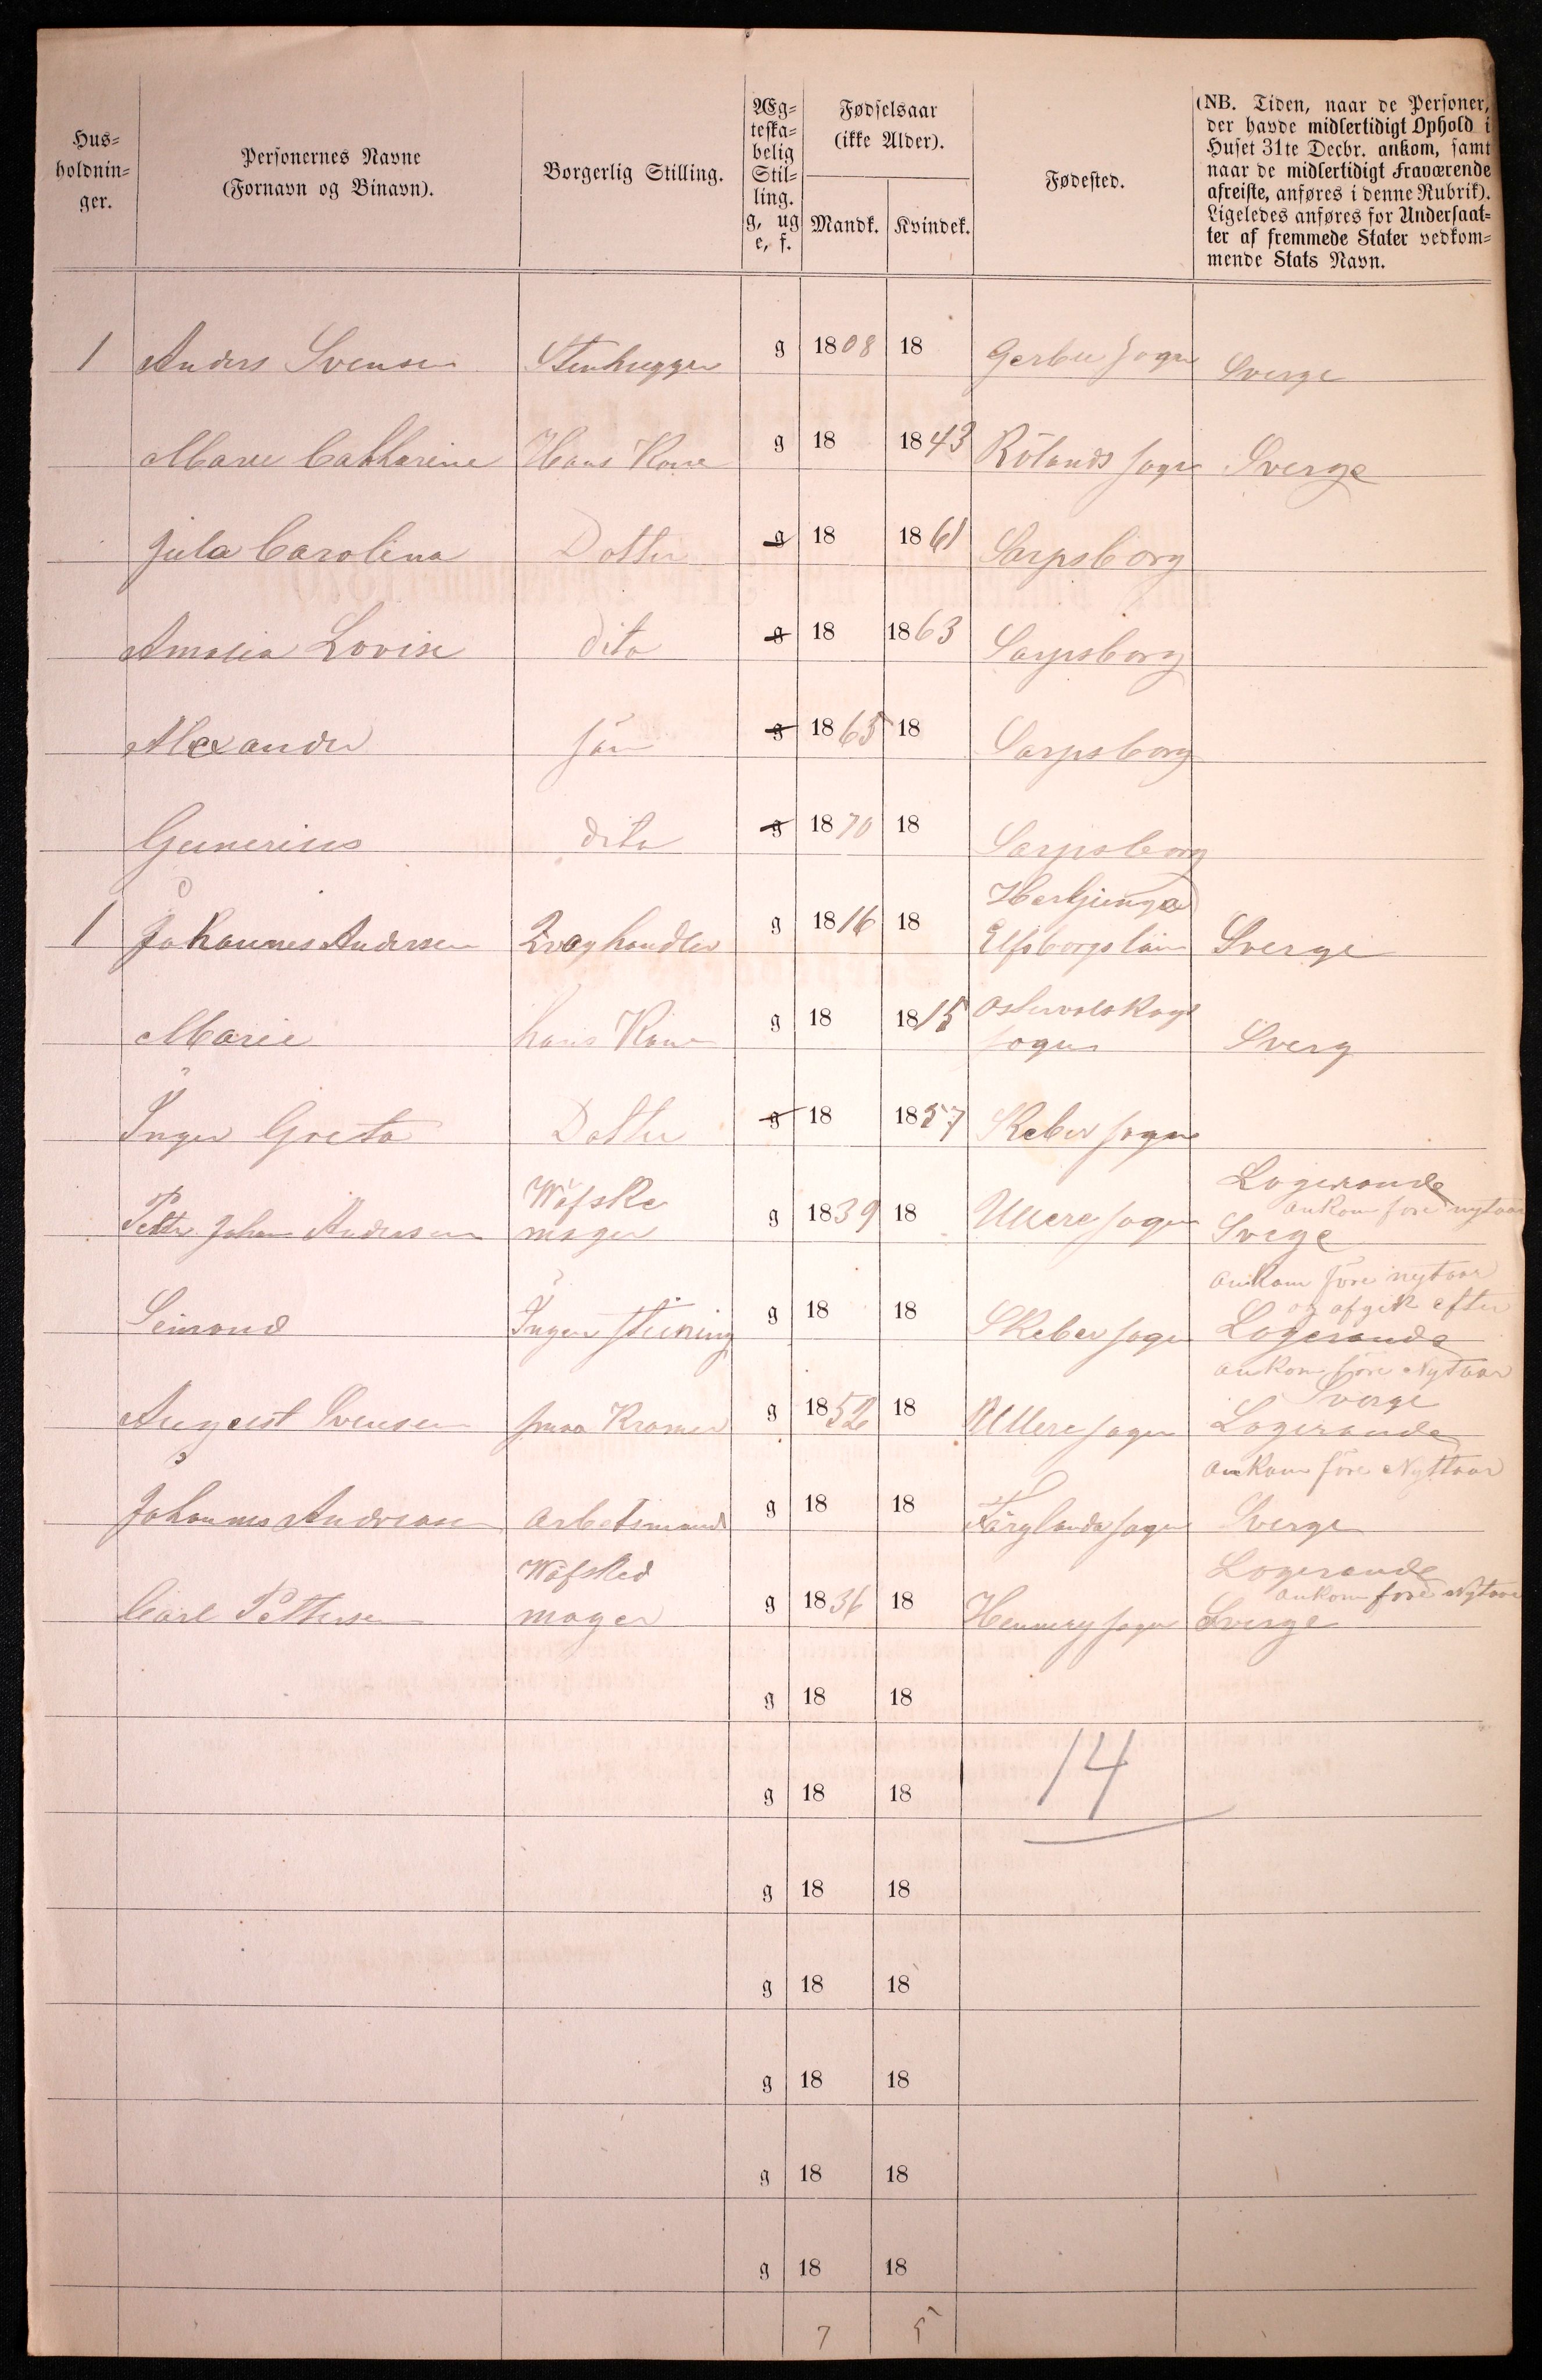 Hus-
holdnin-
ger.
Personernes Navne
(Fornavn og Binavn).
Borgerlig Stilling.
Æg-
teska-
belig
Stil-
ling.
g, ug
e, f.
Fødselsaar
(ikke Alder).
Mandk. Kvindek.
Fødested.
(NB. Tiden, naar de Personer,
der havde midlertidigt Ophold i
Huset 31te Decbr. ankom, samt
naar de midlertidigt Fraværende
afreiste, anføres i denne Rubrik).
Ligeledes anføres for Undersaat-
ter af fremmede Stater vedkom-
mende Stats Navn.
1 Anders Svensen Stenhugger g 1808 18 Gerbu sogn Sverge
Marie Catharine Hans Kone g 18 1843 Rölands sogn Sverge
Jula Carolina Dotter g 18 1861 Sarpsborg
Amalia Lovise dito g 18 1863 Sarpsborg
Alexander sön g 1865 18 Sarpsborg
Gunerius dito g 1870 18 Sarpsborg
1 Johannes Andersen Draghandler g 1816 18 Herljunga
Elfsborgs län Sverge
Marie hans Kone g 18 1815 Ostervolskogs
sogn Sverg
Inger Greta Dotter g 18 1857 Skeber sogn
Petter Johan Andersen Wäfske
mager g 1839 18 Ullere sogn Logerande
ankom före nytaar
Svege
Simond Ingen stiening g 18 18 Skeber sogn ankom före nytaar
og afgik efter
Logerande
August Svensen smaa Kramer g 1852 18 Ullere sogn ankom före Nytaar
Sverge
Logerande
Johannes Andreasen Arbetsmand g 18 18 Färglanda sogn ankom före Nyttaar
Sverge
Carl Pettersen Wäfsked
mager g 1836 18 Hemmery sogn Logerande
ankom före Nytaar
Sverge
g 18 18
g 18 18 14
g 18 18
g 18 18
g 18 18
g 18 18
g 18 18
7 5